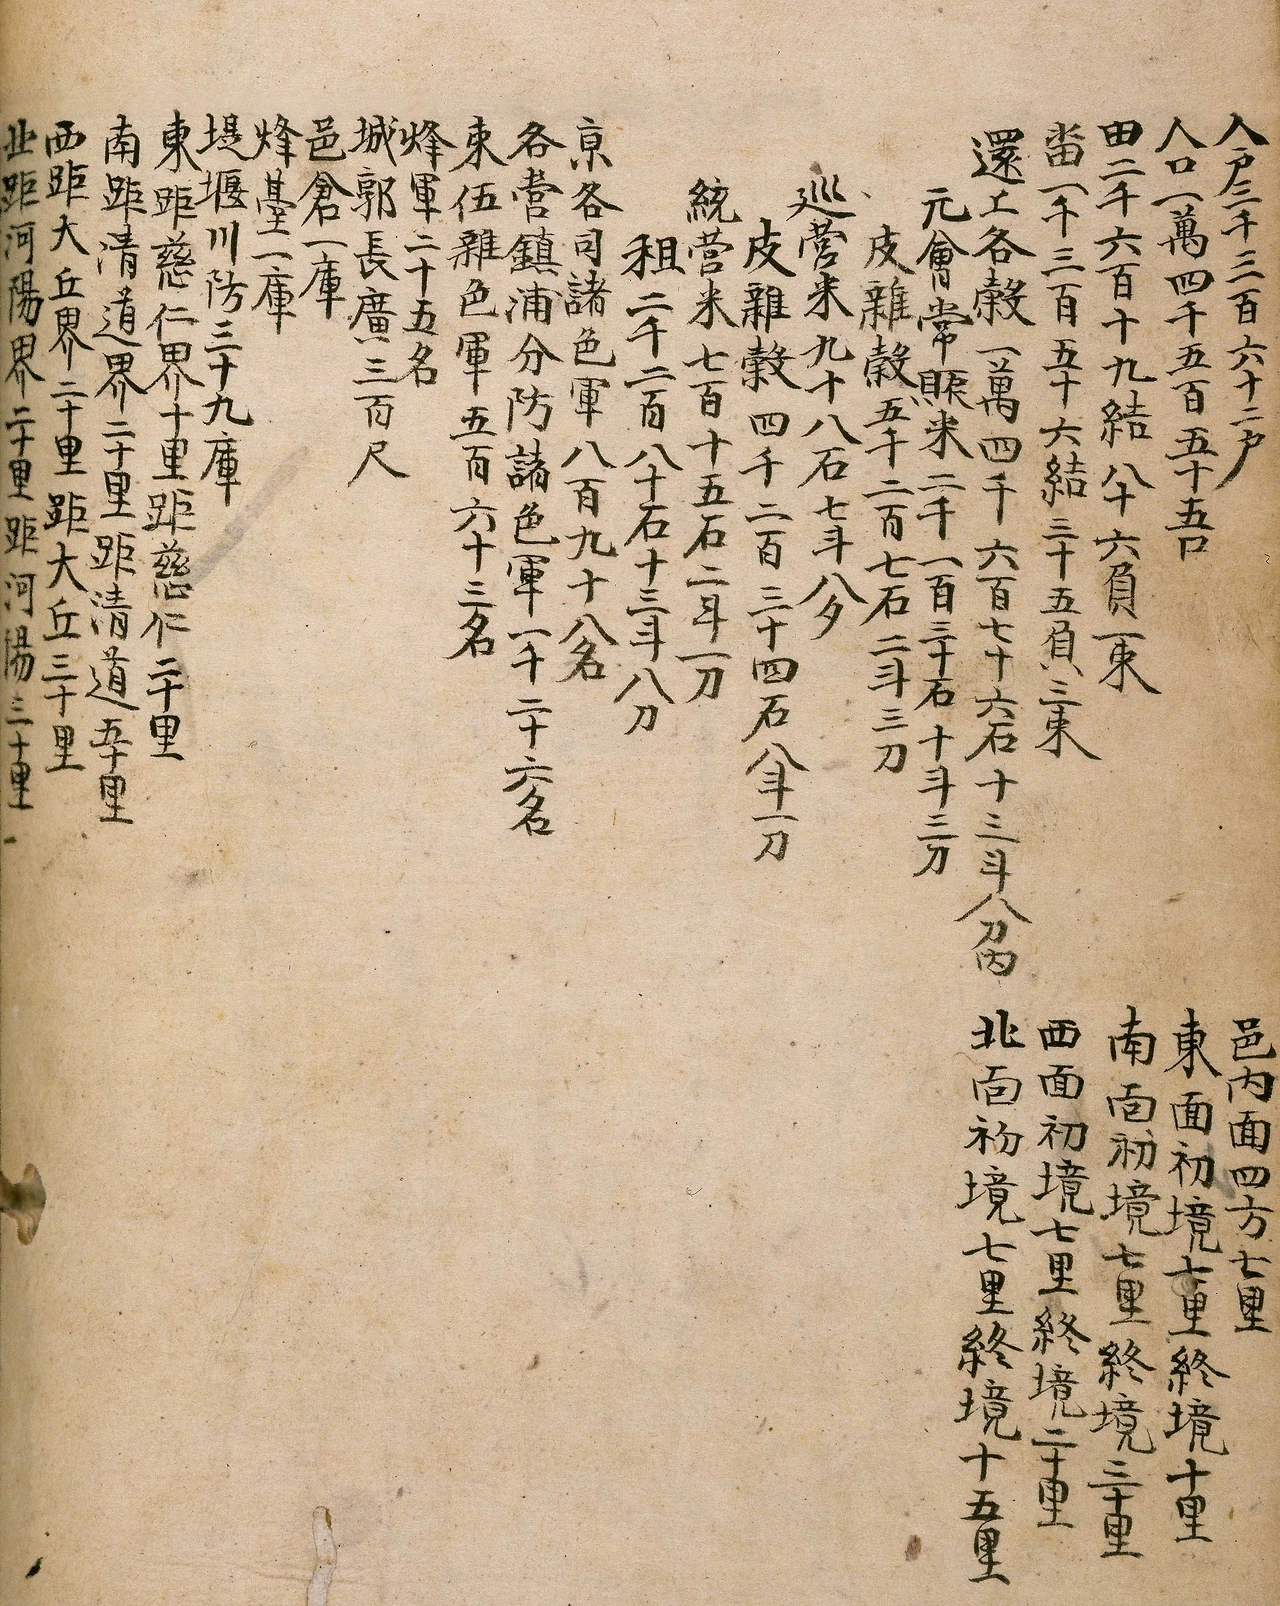 人戶三千三百六十二戶
人口一萬四千五百五十五口
田二千六百十九結八十六負一束
畓一千三百五十六結三十五負三束
還上各穀一萬四千六百七十六石十三斗八刀內
元會常賑米二千一百三十石十斗三刀
皮雜穀五千二百七石二斗三刀
巡營米九十八石七斗八夕
皮雜穀四千二百三十四石八斗一刀
統營米七百十五石二斗一刀
租二千二百八十石十三斗八刀
京各司諸色軍八百九十八名
各營鎮浦分防諸色軍一千二十六名
束伍雜色軍五百六十三名
烽軍二十五名
城郭長廣三百尺
邑倉一庫
烽臺一庫
堤堰川防三十九庫
東距慈仁界十里距慈仁二十里
南距清道界二十里距清道五十里
西距大丘界二十里距大丘三十里
北距河陽界二十里距河陽三十里
邑內面四方七里
東面初境七里終境十里
南面初境七里終境三十里
西面初境七里終境二十里
北面初境七里終境十五里